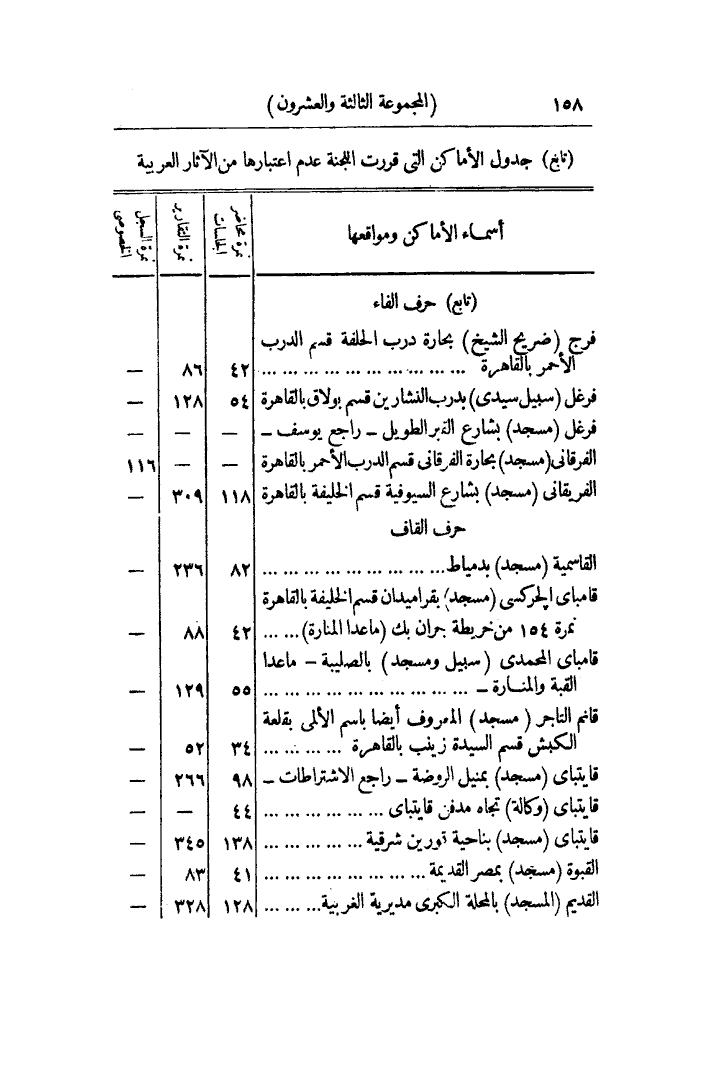 ١٥٨ (المجموعة الثالثة والعشرون)
(تابع) جدول الأماكن التى قررت اللجنة عدم اعتبارها من الآثار العربية
أسماء الأماكن ومواقعها | نمرة محاضر الجلسات | نمرة التقارير | نمرة السجل الخصوصى
(تابع) حرف الفاء
فرج (ضريح الشيخ) بحارة درب الحلفة قسم الدرب
الأحمر بالقاهرة ... ... ... ... ... ... ... ... ... ٤٢ ٨٦ —
فرغل (سبيل سيدى) بدرب النشارين قسم بولاق بالقاهرة ٥٤ ١٢٨ —
فرغل (مسجد) بشارع القبر الطويل – راجع يوسف – — — —
الفرقانى (مسجد) بحارة الفرقانى قسم الدرب الأحمر بالقاهرة — — ١١٦
الفريقانى (مسجد) بشارع السيوفية قسم الخليفة بالقاهرة ١١٨ ٣٠٩ —
حرف القاف
القاسمية (مسجد) بدمياط ... ... ... ... ... ... ... ... ٨٢ ٢٣٦ —
قامباى الجركسى (مسجد) بقراميدان قسم الخليفة بالقاهرة
نمرة ١٥٤ من خريطة جران بك (ماعدا المنارة) ... ... ٤٢ ٨٨ —
قامباى المحمدى (سبيل ومسجد) بالصليبة – ماعدا
القبة والمنارة – ... ... ... ... ... ... ... ... ... ٥٥ ١٢٩ —
قانم التاجر (مسجد) المعروف أيضا باسم الألمى بقلعة
الكبش قسم السيدة زينب بالقاهرة ... ... ... ... ٣٤ ٥٢ —
قايتباى (مسجد) بمنيل الروضة – راجع الاشتراطات – ٩٨ ٢٦٦ —
قايتباى (وكالة) تجاه مدفن قايتباى ... ... ... ... ... ٤٤ — —
قايتباى (مسجد) بناحية تورين شرقية ... ... ... ... ... ١٣٨ ٣٤٥ —
القبوة (مسجد) بمصر القديمة ... ... ... ... ... ... ... ٤١ ٨٣ —
القديم (المسجد) بالمحلة الكبرى مديرية الغربية ... ... ... ١٢٨ ٣٢٨ —